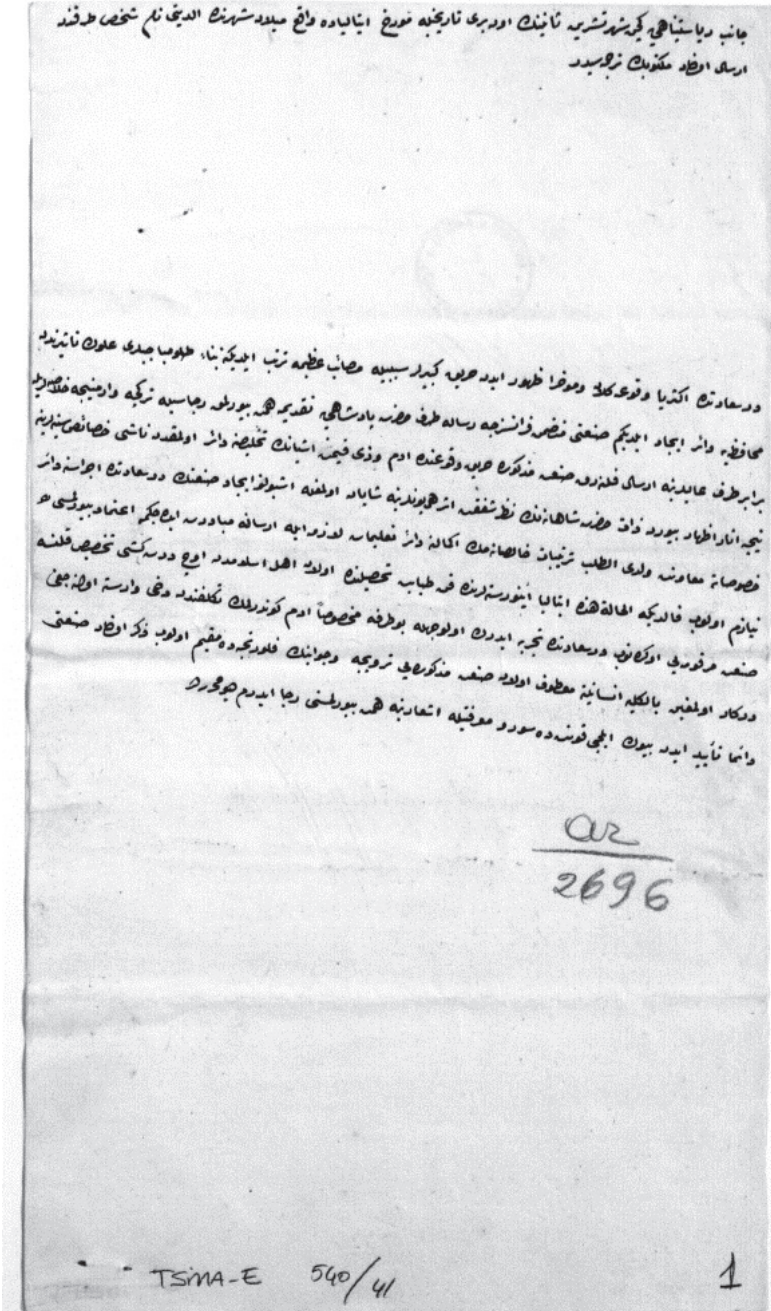 جانب ریاستپناهی کچن شهر تشرین ثانینك اون بری تاریخیله مورخ ایتالیاده واقع میلان شهرنده الدینی نام شخص طرفندن
ارسال اولنان مکتوبك ترجمه‌سیدر
درسعادتده اکثریا وقوعه کلان و مؤخرا ظهور ایدن حریق کبیرلر سببیله مصائب عظیمه ترتب ایلدیکنه بناء طلومباجیلری علوك تأثیرندن
محافظه‌یه دائر ایجاد ایلدیکم صنعتی متضمن فرانسزجه رساله طرف حضرت پادشاهی‌یه تقدیمنه همت بیورلمق رجاسیله ترکیه وارمنیجه خلاصه‌لریله
برابر طرف عالیلرینه ارسال قلنه‌رق صنعت مذکوره حریق وقوعنده ادم وذی قیمت اشیانك تخلیصنه دائر اولمقدن ناشی خصائص سنیه‌لرینه
نیجه اثار اظهار بیوران ذات حضرت شاهانه‌نك نظر شفقت اثر همایونلرینه شایان اولمغله اشبو نو ایجاد صنعتك درسعادتده اجراسنه دائر
خصوصاته معاونت ولدی الطلب ترتیبات خالصانه‌مك اکمالنه دائر تعلیماتی لازمه‌نك ارسالنه مبادرت ایده‌جکمه اعتماد بیورلمسی
نیازم اولوب قالدیکه الحالة هذه ایتالیا اینورسته‌لرنده فن طبابت تحصیلنده اولان اهل اسلامدن اوچ درت کشی تخصیص قلنه
صنعت مرقومه‌یی اوکرنوب درسعادتده تجربه ایدرك اولوجهله بو طرفه مخصوصا ادم کوندرلمك تکلفندن دخی وارسته اولنه‌جغی
درکار اولمغین بالکلیه انسانیته معطوف اولان صنعت مذکوره‌یی ترویجه وجوابنك فلورنچه‌ده مقیم اولوب ذکر اولنان صنعتی
دائما تأیید ایدن بیوك ایلچی قونت ده معرفتیله اشعارینه همت بیورلمسنی رجا ایدرم
ar
2696
TSMA-E 540/41
1